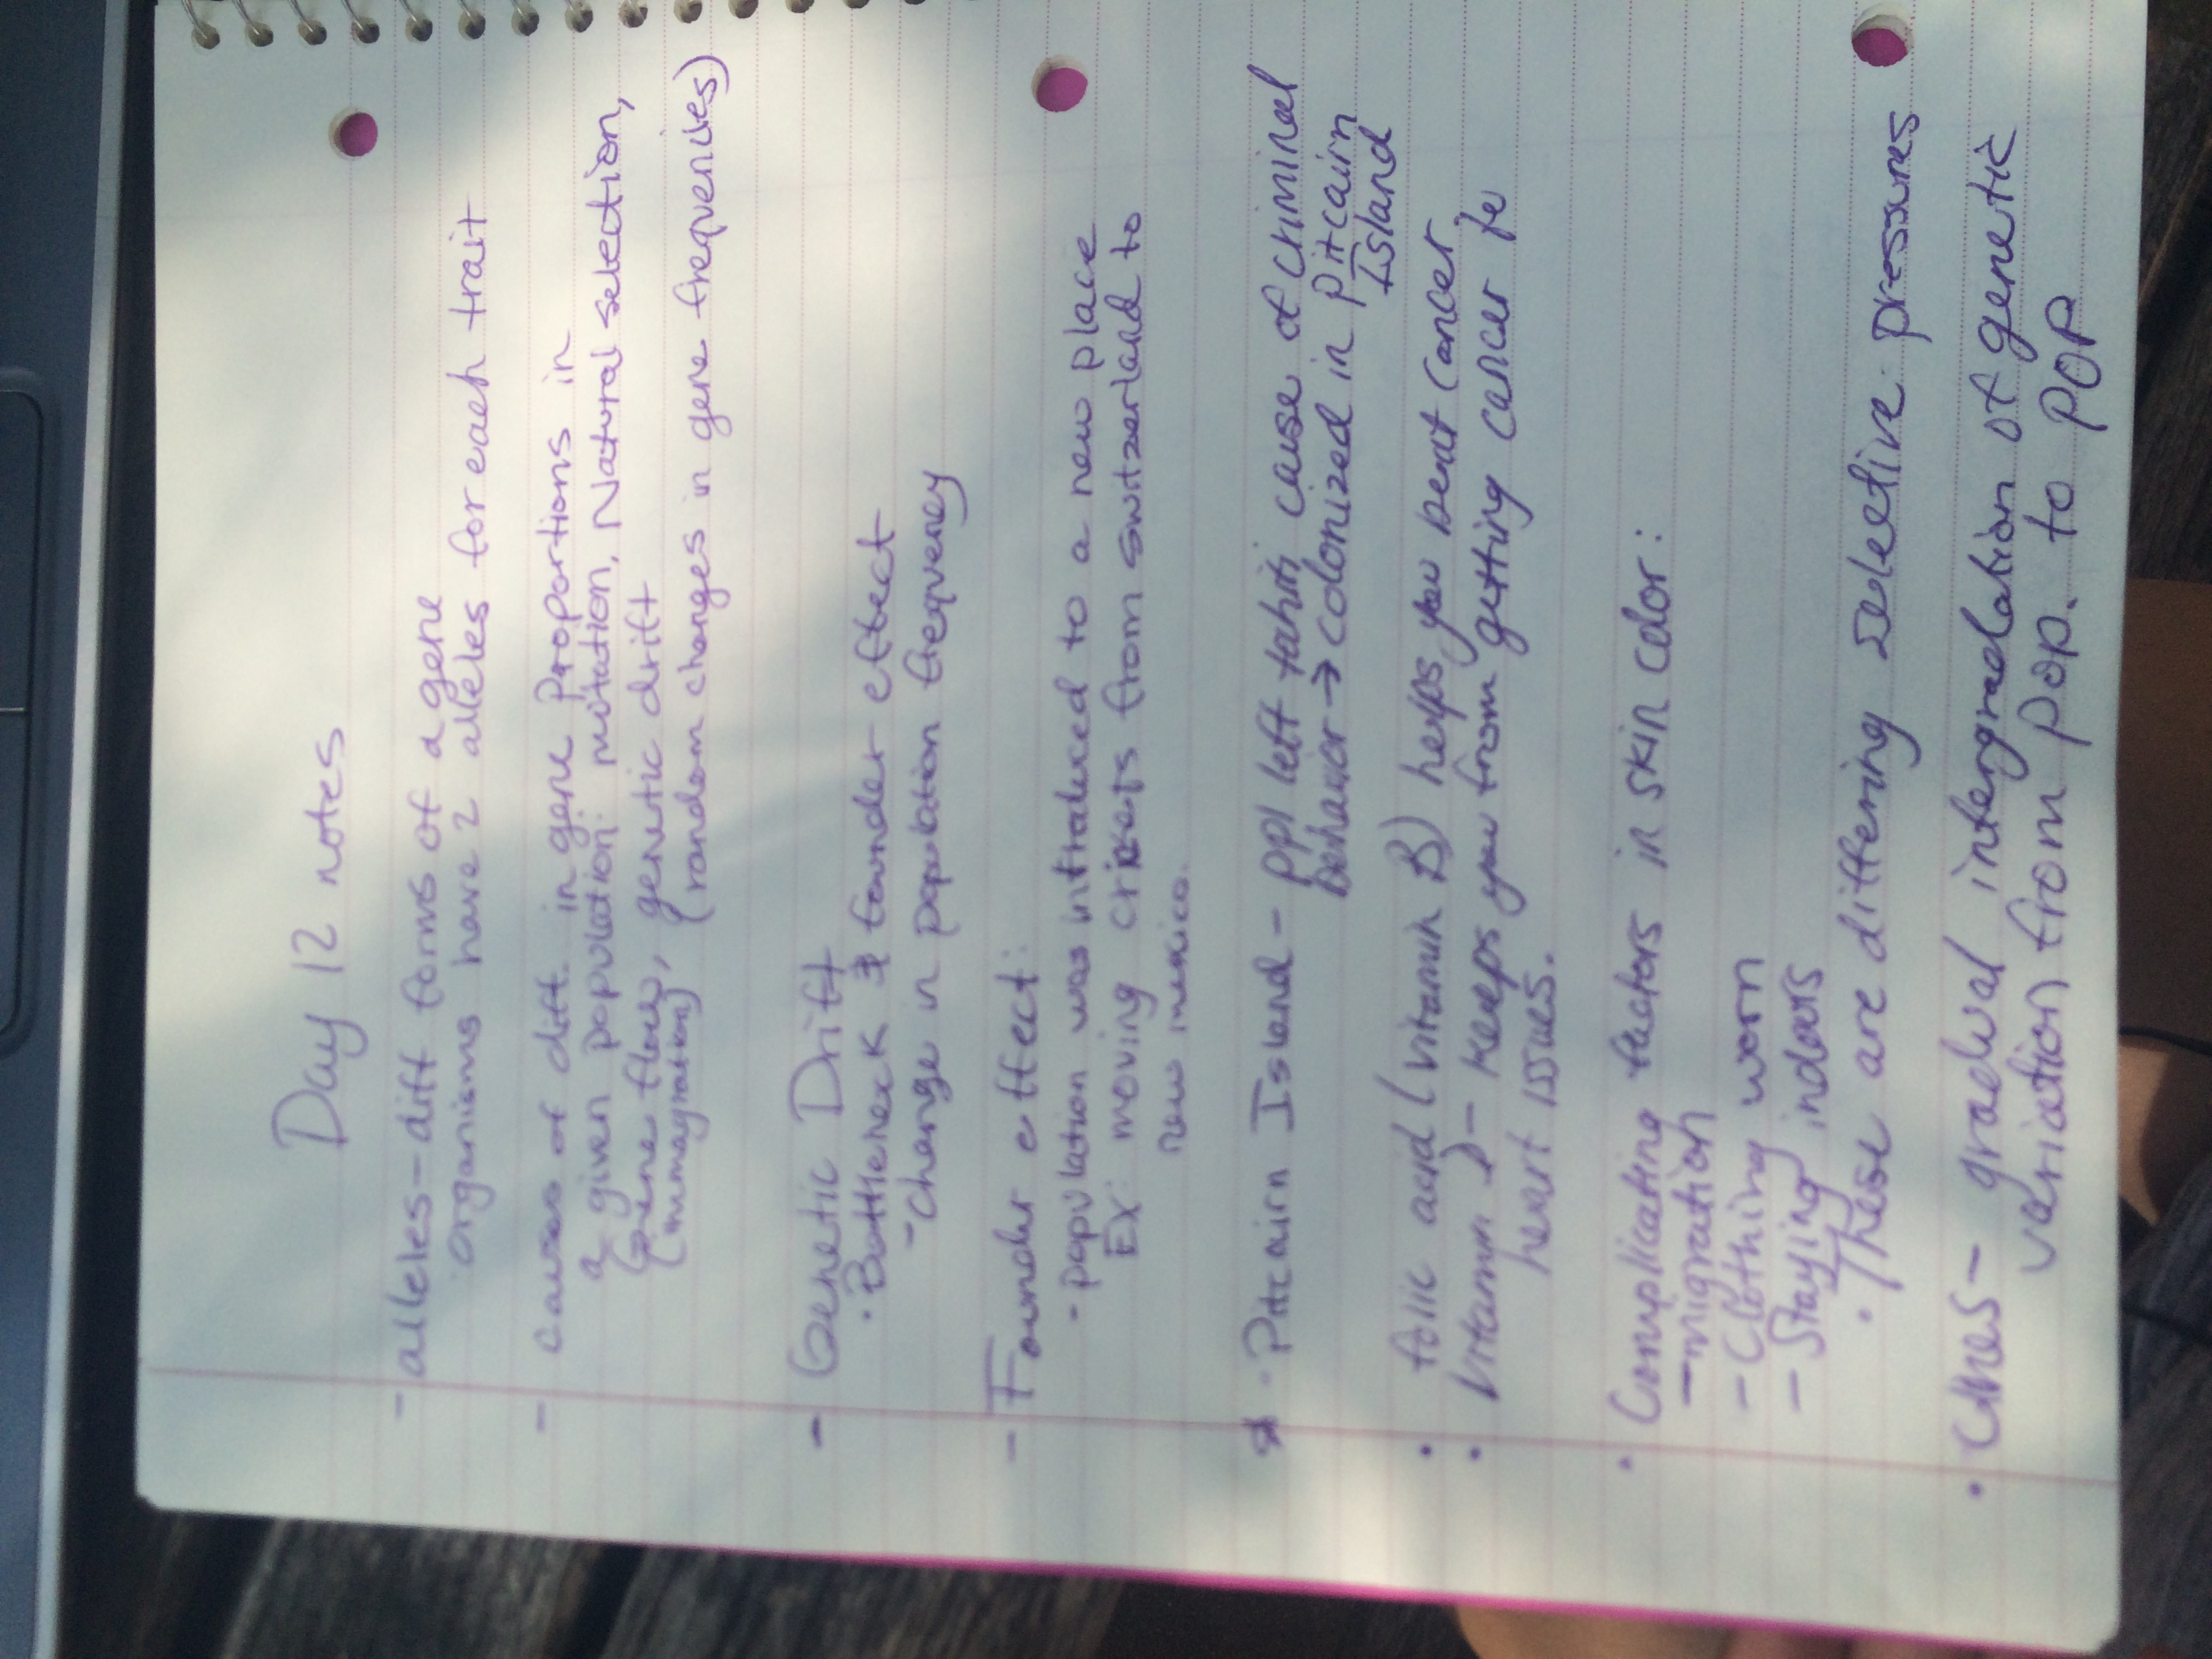 Day 12 notes
- alleles - diff forms of a gene
organisms have 2 alleles for each trait
- causes of diff. in gene proportions in
a given population: mutation, Natural selection,
Gene flow, genetic drift
(immagration) (random changes in gene frequencies)
- Genetic Drift
· Bottleneck & founder effect
- change in population frequency
- Founder effect:
- population was introduced to a new place
Ex: moving crickets from switzerland to
new mexico.
· Pitcairn Island - ppl left tahiti cause of criminal
behavior → colonized in Pitcairn
Island
· folic acid (vitamin B) helps you beat cancer
· Vitamin D - keeps you from getting cancer &
heart issues.
· Complicating factors in skin color:
- migration
- Clothing worn
- Staying indoors
· These are differing selective pressures
· Clines - gradual intergradation of genetic
variation from pop. to pop